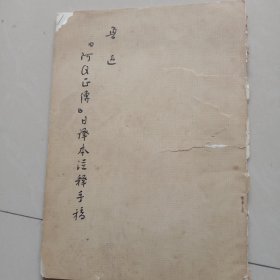 鲁迅
《阿Q正傳》日译本注释手稿